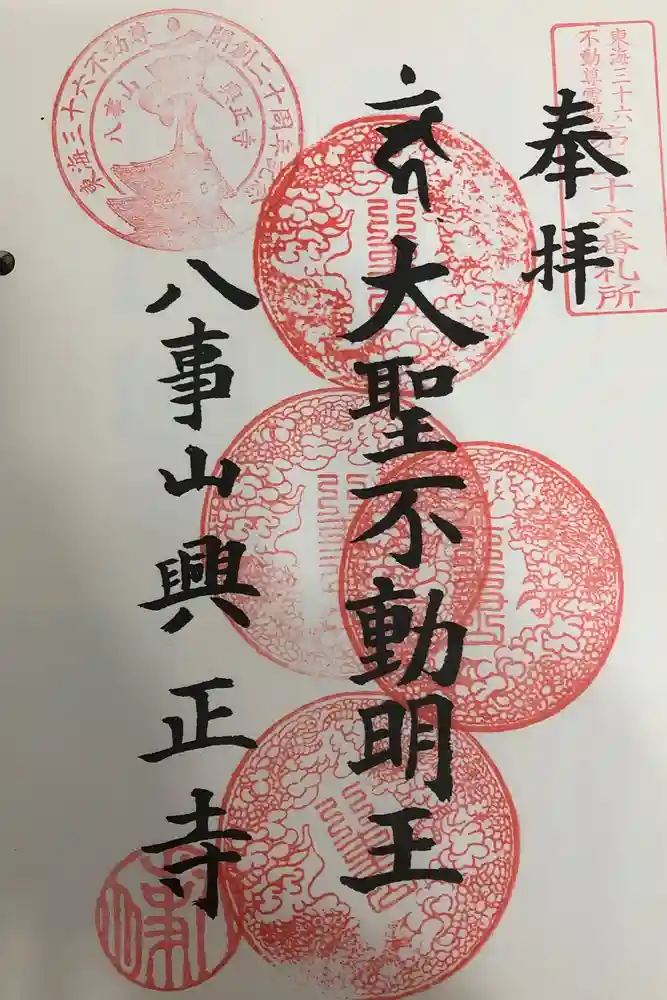 奉拝
東海三十六
不動尊霊場
第三十六番札所
大聖不動明王
八事山興正寺
東海三十六不動尊
開創二十周年記念
八事山
興正寺